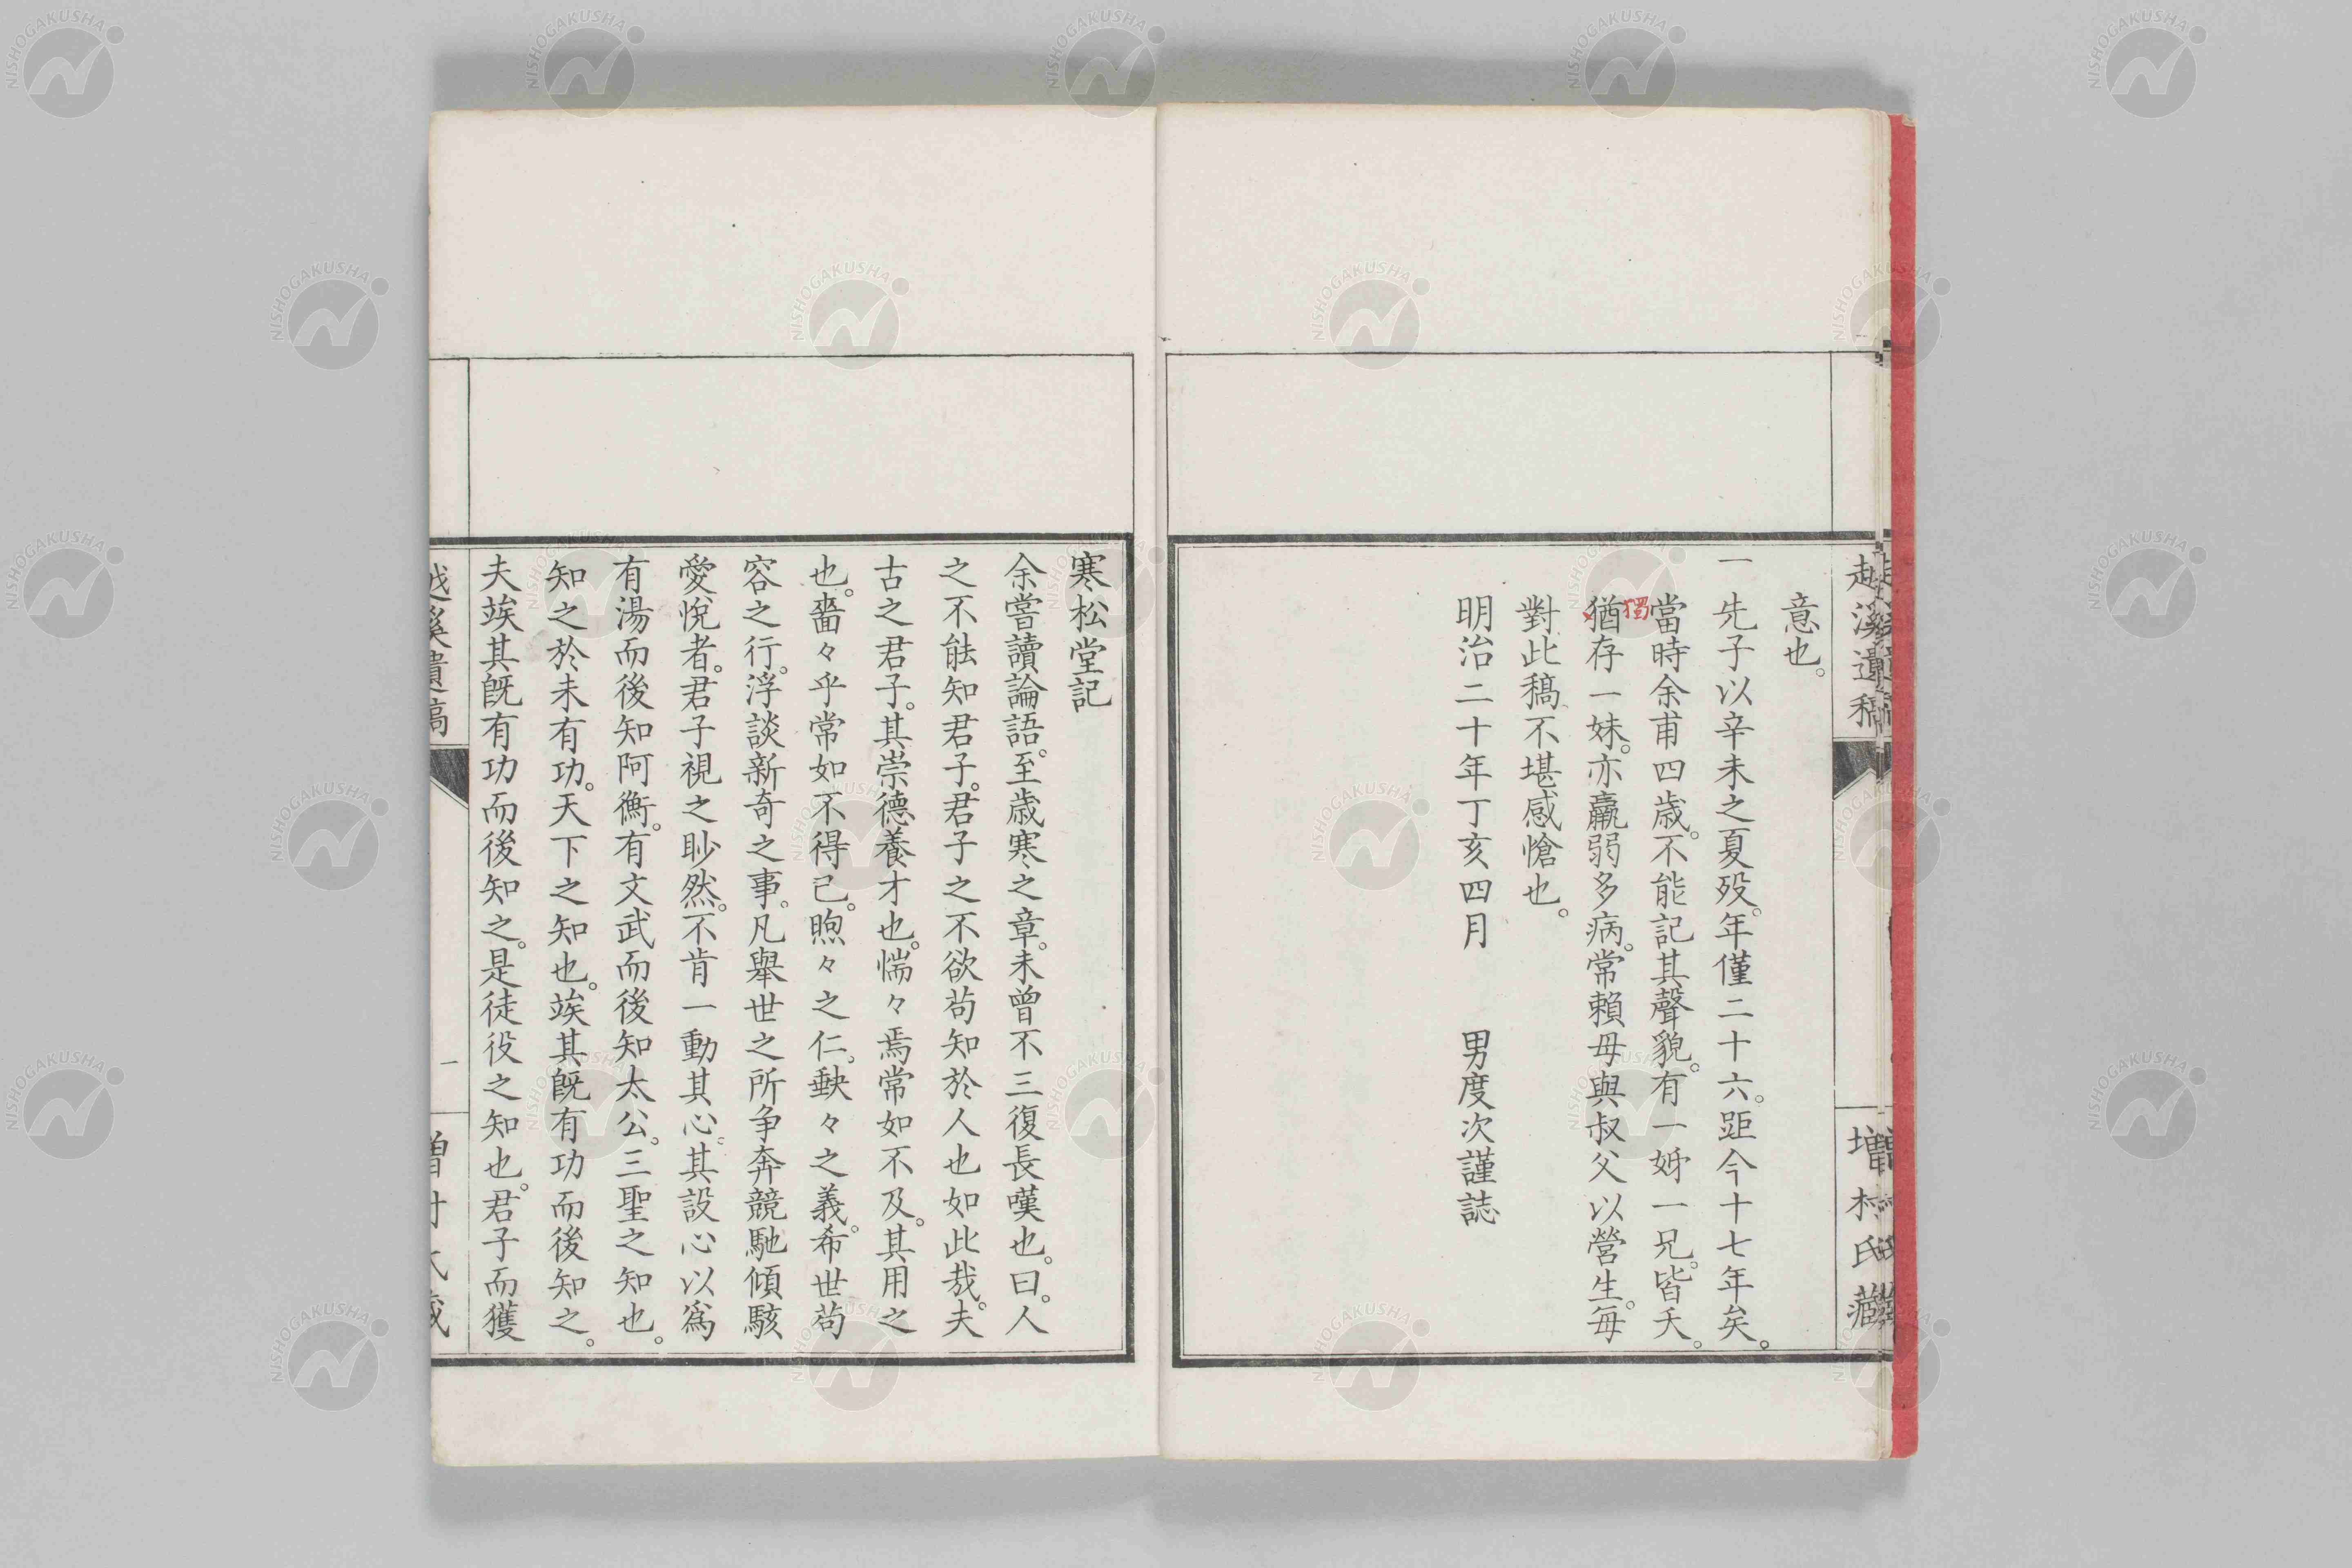 越溪遺稿
增村氏藏
意也。
一先子以辛未之夏歿。年僅二十六。距今十七年矣。
當時余甫四歳。不能記其聲貌。有一姊一兄。皆夭。
獨
猶存一妹。亦羸弱多病。常賴母與叔父以營生。每
對此稿不堪感愴也。
明治二十年丁亥四月　男度次謹誌
寒松堂記
余嘗讀論語。至歳寒之章。未曾不三復長嘆也。曰。人
之不能知君子。君子之不欲苟知於人也如此哉。夫
古之君子。其崇德養才也。惴々焉常如不及。其用之
也。嗇々乎常如不得已。煦々之仁。
々之義。希世苟
容之行。浮談新奇之事。凡舉世之所争奔競馳傾駭
愛悅者。君子視之眇然。不肯一動其心。其設心以爲
有湯而後知阿衡。有文武而後知太公。三聖之知也。
知之於未有功。天下之知也。竢其既有功而後知之。
夫竢其既有功而後知之。是徒役之知也。君子而獲
越溪遺稿
一
增村氏藏
NISHOGAKUSHA